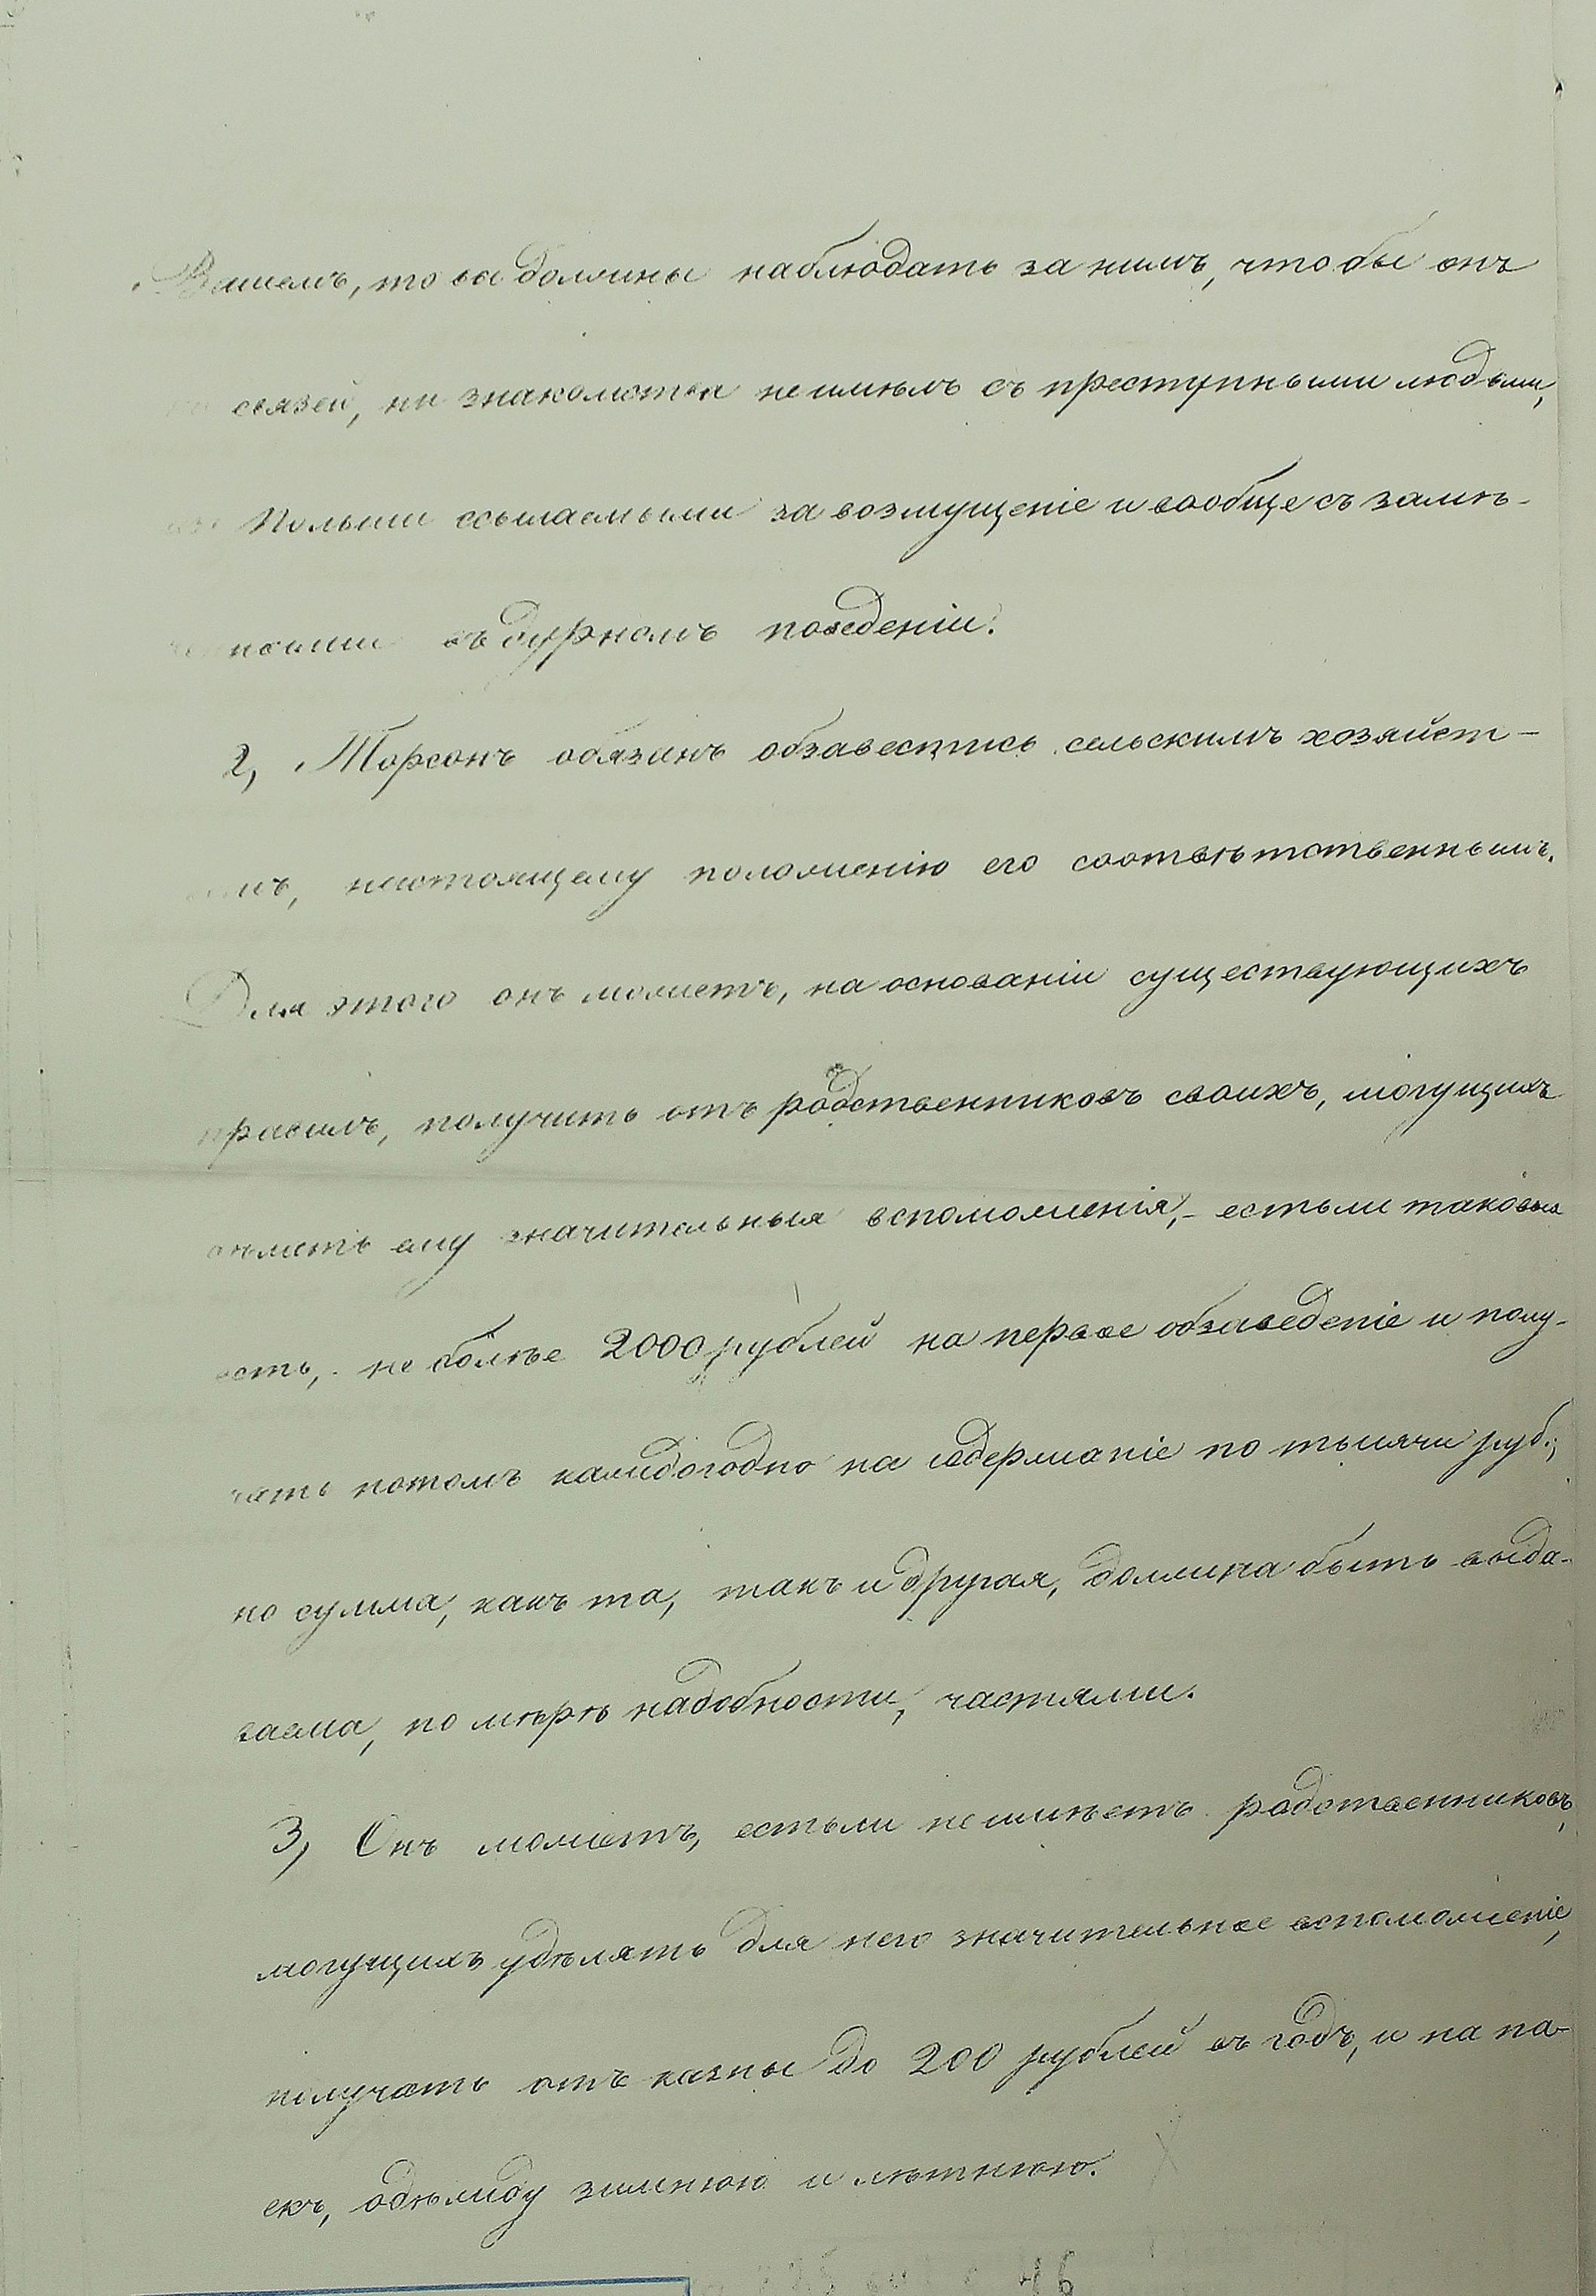 Вашемъ, то вы должны наблюдать за нимъ, чтобы онъ
связей, ни знакомства не имѣлъ съ преступными людьми,
Польши ссылаемыми за возмущеніе и вообще съ замѣ-
ченными въ дурномъ поведеніи.
2, Торсонъ обязанъ обзавестись сельскимъ хозяйст-
вомъ, настоящему положенію его соотвѣтственнымъ.
Для этого онъ можетъ, на основаніи существующихъ
правилъ, получить отъ родственниковъ своихъ, могущихъ
дѣлать ему значительныя вспоможенія,- естьли таковыя
есть,- не болѣе 2000 рублей на первое обзаведеніе и полу-
чать потомъ каждогодно на содержаніе по тысячи руб.;
но сумма, какъ та, такъ и другая, должна быть выда-
ваема, по мѣрѣ надобности, частями.
3, Онъ можетъ, естьли не имѣетъ родственниковъ,
могущихъ удѣлять для него значительное вспоможеніе,
получать отъ казны до 200 рублей въ годъ, и на па-
екъ, одѣжду зимнюю и лѣтнюю.
46